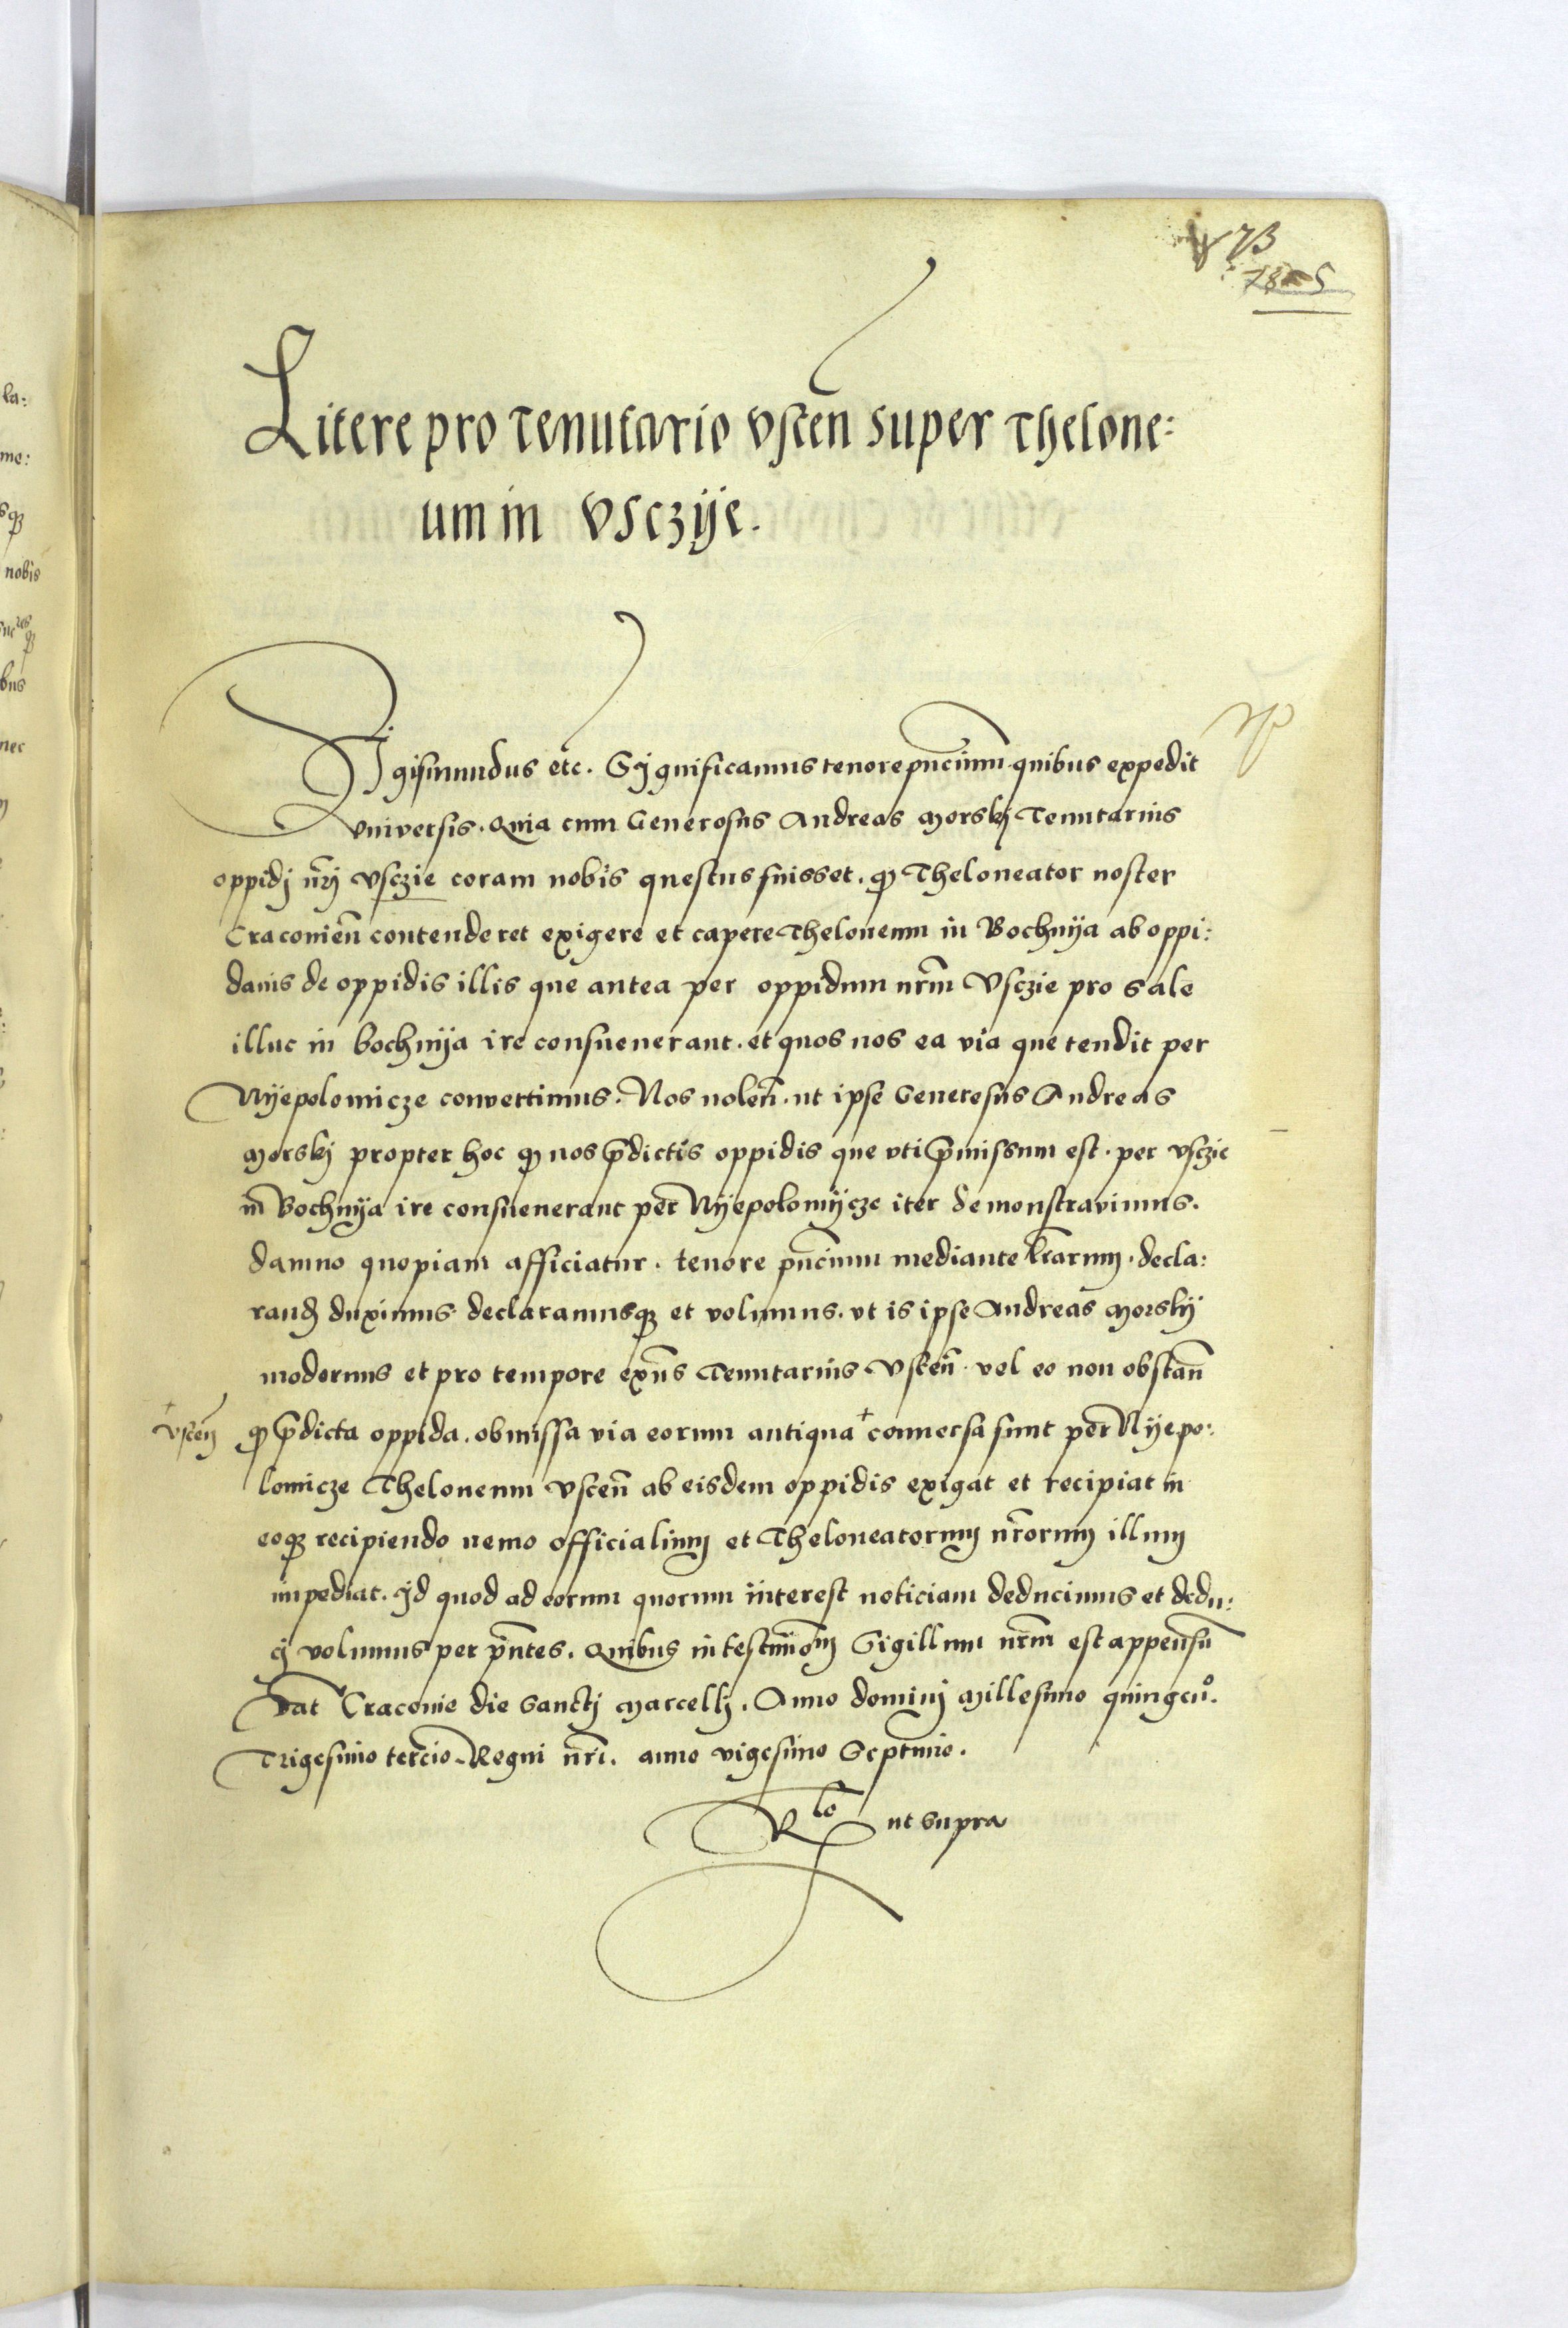 73
Litere pro Tenutario vscen̄ super Thelone:
um in Vsczÿe.
Sigismundus etc. Sÿgnificamus tenore pn̄cium quibus expedit
vniversis. Quia cum Generosus Andreas Morskj Tenutarius
oppidj nr̄j vsczie coram nobis questus fuisset. ꝙ Theloneator noster
Cracovien̄ contenderet exigere et capere Theloneum in Bochnÿa ab oppi:
danis de oppidis illis que antea per oppidum nr̄m Vsczie pro sale
illuc in bochnÿa ire consueuerant. et quos nos ea via que tendit per
Nÿepolomicze convertimus. Nos nolen̄. ut ipse Generosus Andreas
Morskj propter hoc ꝙ nos p̄dictis oppidis que vti p̄missum est. per vsczie
in Bochnÿa ire consueuerant per Nÿepolomÿcze iter demonstravimus.
damno quopiam afficiatur. tenore pn̄cium mediante lr̄arum. decla:
rand̄ duximus declaramusqꝫ et volumus. vt is ipse Andreas Morskÿ
modernus et pro tempore exn̄s Tenutarius Vscen̄. vel eo non obstan̄
+vscen̄
ꝙ p̄dicta oppida. obmissa via eorum antiqua + conuersa sunt per Nÿepo:
lomicze Theloneum Vscen̄ ab eisdem oppidis exigat et recipiat in
eoqꝫ recipiendo nemo officialium et Theloneatorum nr̄orum illum
impediat. Id quod ad eorum quorum interest noticiam deducimus et dedu:
cj volumus per pn̄tes. Quibus in testimōm Sigillum nr̄m est appensū
Dat Cracovie die Sanctj Marcellj. Anno dominj Millesimo quingcͦ.
Trigesimo tercio. Regni nr̄i. anno vigesimo Septimo.
Rlo ut supra